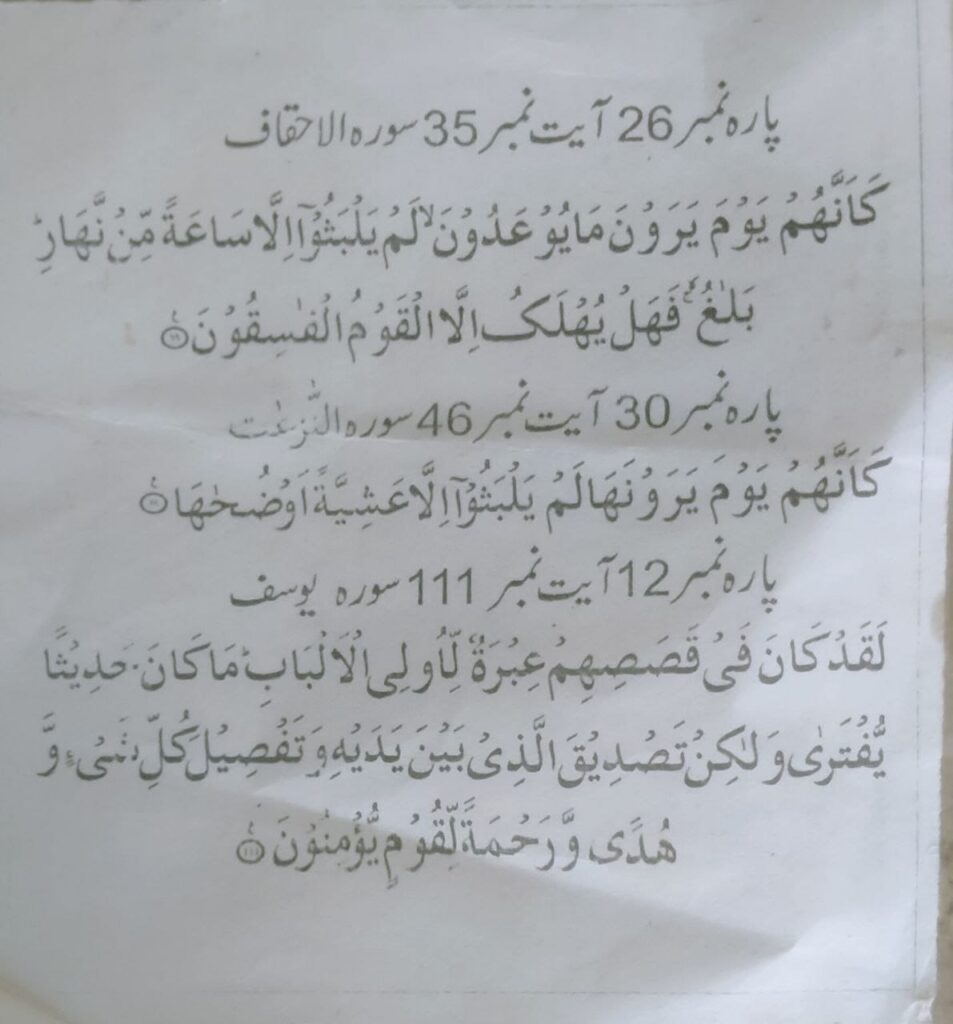 پارہ نمبر 26 آیت نمبر 35 سورہ الاحقاف
كَاَنَّهُمْ يَوْمَ يَرَوْنَ مَا يُوْعَدُوْنَ ۙ لَمْ يَلْبَثُوْۤا اِلَّا سَاعَةً مِّنْ نَّهَارٍ ؕ
بَلٰغٌ ۚ فَهَلْ يُهْلَكُ اِلَّا الْقَوْمُ الْفٰسِقُوْنَ
پارہ نمبر 30 آیت نمبر 46 سورہ النّٰزعٰت
كَاَنَّهُمْ يَوْمَ يَرَوْنَهَا لَمْ يَلْبَثُوْۤا اِلَّا عَشِيَّةً اَوْ ضُحٰهَا
پارہ نمبر 12 آیت نمبر 111 سورہ یوسف
لَقَدْ كَانَ فَىْ قَصَصِهِمْ عِبْرَةٌ لِّاُولِى الْاَلْبَابِ ؕ مَا كَانَ حَدِيْثًا
يُّفْتَرٰى وَلٰكِنْ تَصْدِيْقَ الَّذِىْ بَيْنَ يَدَيْهِ وَ تَفْصِيْلَ كُلِّ شَىْءٍ وَّ
هُدًى وَّ رَحْمَةً لِّقَوْمٍ يُّؤْمِنُوْنَ ۝۱۱۱